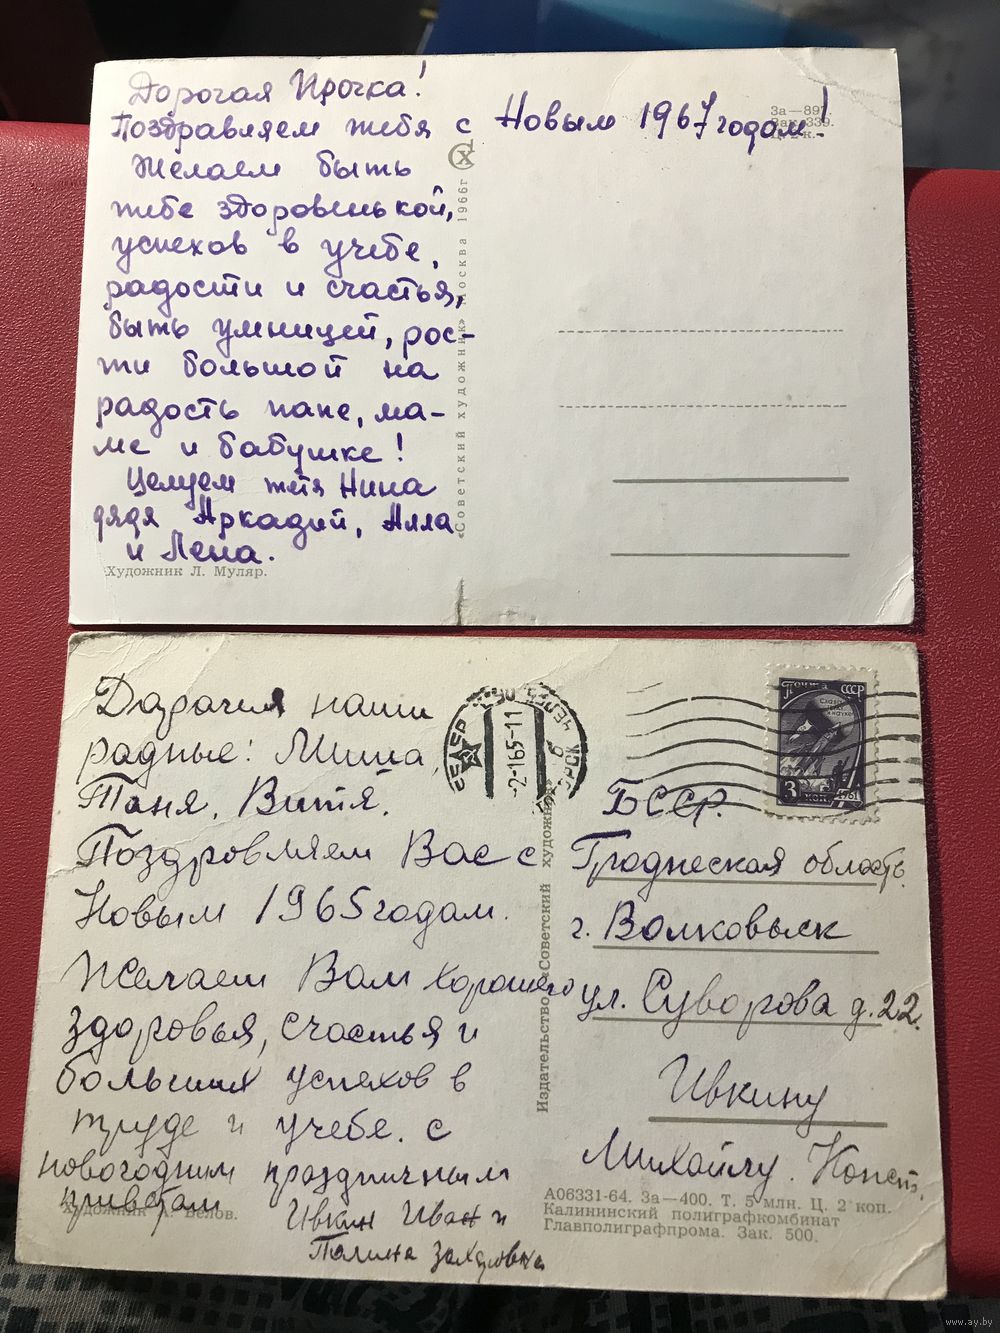 Дорогая Ирочка!
Поздравляем тебя с Новым 1967 годом!
Желаем быть
тебе здоровенькой,
успехов в учебе,
радости и счастья,
быть умницей, рос-
ти большой на
радость папе, ма-
ме и бабушке!
Целуем тётя Нина
дядя Аркадий, Алла
и Лена.
Художник Л. Муляр.
«Советский художник» Москва 1966г
За—897.
Зак. 339.
Дарагия наши
радные: Миша,
Таня, Витя.
Поздровляем Вас с
Новым 1965 годам.
Желаем Вам хорошего
здоровья, счастья и
больших успехов в
труде и учебе. с
новогодним праздничным
приветам
Ивкин Иван и
Палина Захаровна
Художник А. Белов.
Издательство «Советский художник»
-2-165-11
Почта СССР
3 коп. 1961
БССР.
Гроднеская область.
г. Волковыск
ул. Суворова д. 22.
Ивкину
Михайлу. Конст.
А06331-64. За—400. Т. 5 млн. Ц. 2 коп.
Калининский полиграфкомбинат
Главполиграфпрома. Зак. 500.
www.ay.by